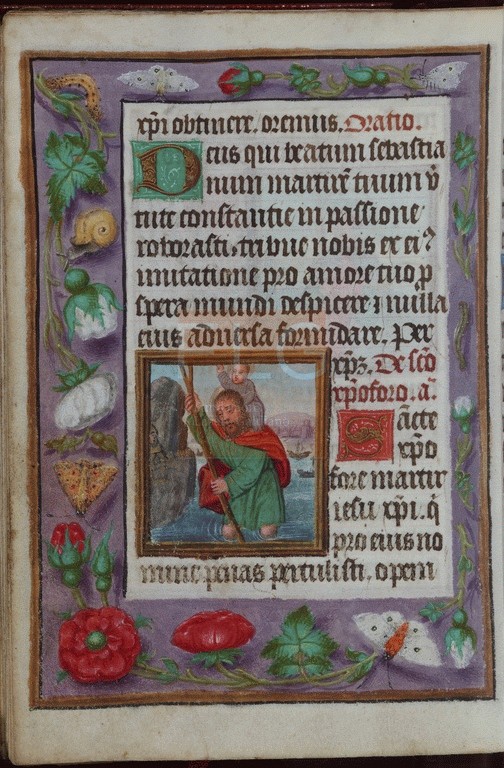 xp̄i obtinere. oremus. Oratio.
Deus qui beatum sebastia
num martirē tuum v̄
tute constantie in passione
roborasti. tribue nobis ex ei⁹
imitatione pro amore tuo p̄
spera mundi despicere ⁊ nulla
eius aduersa formidare. Per
xp̄ꝫ. De sc̄o
xp̄oforo. a.
Sācte
xp̄o
fore martir
iesu xp̄i. q̄
pro eius no
mine penas pertulisti. opem